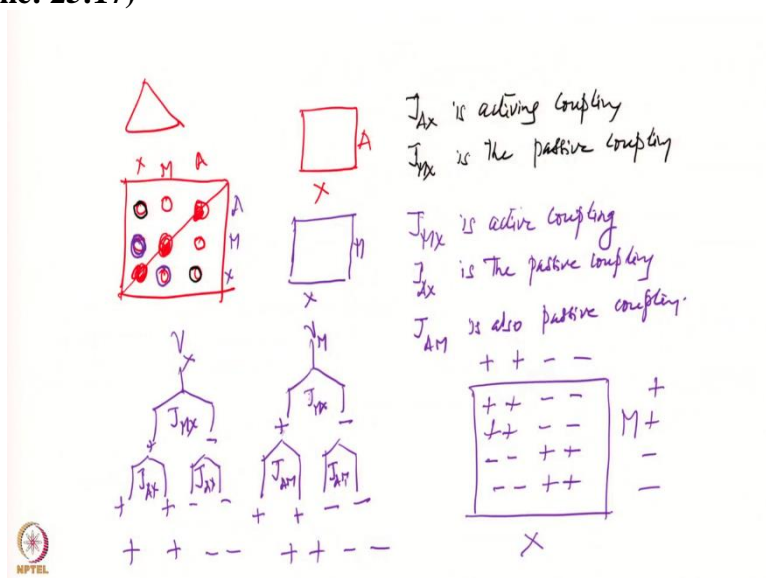 ne: 25:17)
J_AX is activing coupling
J_MX is the passive coupling
J_MX is active coupling
J_AX is the passive coupling
J_AM is also passive coupling.
A
X
X M A
A
M
X
M
X
ν_X
J_MX
+ -
J_AX J_AX
+ + - -
+ + - -
ν_M
J_MX
+ -
J_AM J_AM
+ + - -
+ + - -
+ + - -
+ + - - +
+ + - - M +
- - + + -
- - + + -
X
NPTEL